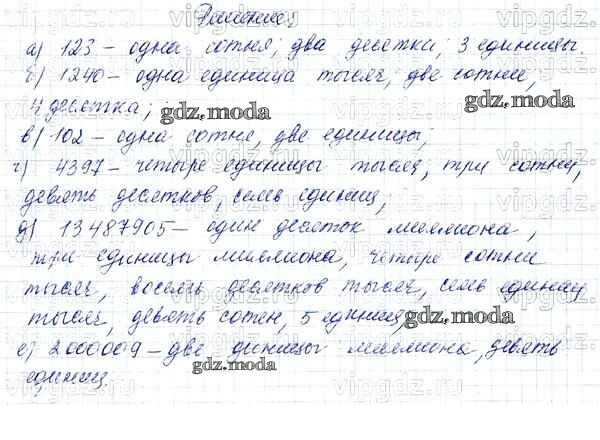 Решение:
а) 123 – одна сотня, два десятки, 3 единицы.
б) 1240 – одна единица тысяч, две сотни,
4 десятка;
gdz.moda
в) 102 – одна сотня, две единицы;
г) 4397 – четыре единицы тысяч, три сотни,
девять десятков, семь единиц,
д) 13487905 – один десяток миллиона,
три единицы миллиона, четыре сотни
тысяч, восемь десятков тысяч, семь единиц
тысяч, девять сотен, 5 единиц,
gdz.moda
е) 2000009 – две единицы миллиона, девять
единиц.
gdz.moda